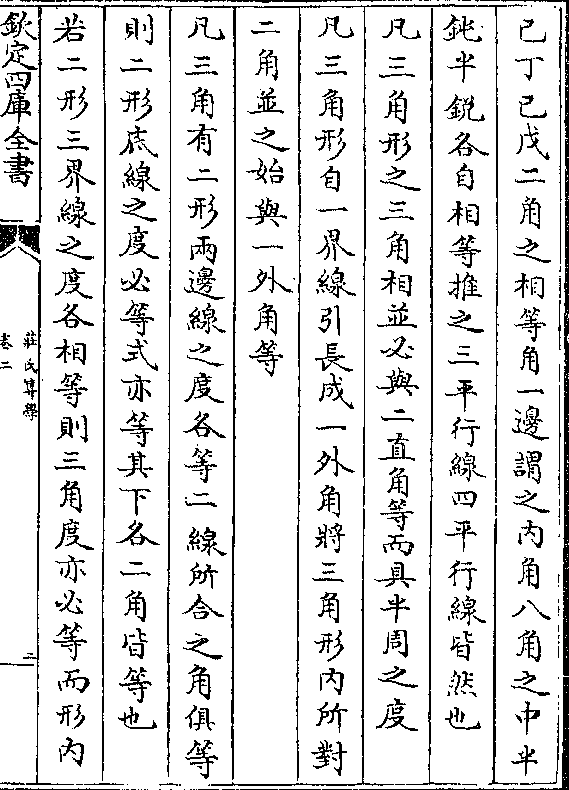 己丁己戊二角之相等角一邊謂之内角八角之中半
鈍半銳各自相等推之三平行線四平行線皆然也
凡三角形之三角相並必與二直角等而具半周之度
凡三角形自一界線引長成一外角將三角形内所對
二角並之始與一外角等
凡三角有二形兩邊線之度各等二線所合之角俱等
則二形底線之度必等式亦等其下各二角皆等也
若二形三界線之度各相等則三角度亦必等而形内
欽定四庫全書
莊氏算學
卷二
二